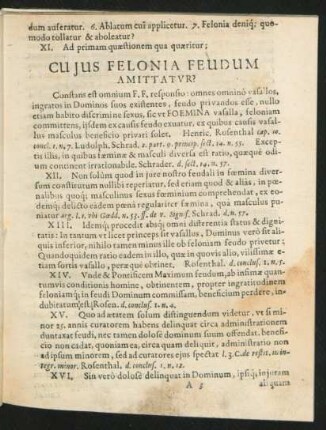 dum auferatur. 6. Ablatum cui applicetur. 7. Felonia deniq; quo-
modo tollatur & aboleatur?
XI. Ad primam quæstionem qua quæritur;
CUJUS FELONIA FEUDUM
AMITTATUR?
Constans est omnium F. F. responsio: omnes omninò vasallos,
ingratos in Dominos suos existentes, feudo privandos esse, nullo
etiam habito discrimine sexus, sic vt FOEMINA vasalla, feloniam
committens, iisdem ex causis feudo exuatur, ex quibus causis vasal-
lus masculus beneficio privari solet. Henric. Rosenthal cap. 10.
concl. 1. n. 7. Ludolph. Schrad. 2. part. 9. princip. sect. 14. n. 55. Excep-
tis illis, in quibus fæminæ & masculi diversa est ratio, quæque odi-
um continent irrationabile. Schrader. d. sect. 14. n. 57.
XII. Non solùm quod in jure nostro feudali in fœmina diver-
sum constitutum nollibi reperiatur, sed etiam quod & alias, in pœ-
nalibus quoq; masculinus sexus fæmininum comprehendat, ex eo-
demq; delicto eadem pœnâ regulariter fæmina, quâ masculus pu-
niatur arg. l. 1. vbi Gœdd. n. 53. ff. de v. signif. Schrad. d. n. 57.
XIII. Idemq; procedit absq; omni differentia status & digni-
tatis: In tantum vt licet princeps sit vasallus, Dominus verò sit ali-
quis inferior, nihilo tamen minus ille ob feloniam feudo privetur;
Quandoquidem ratio eadem in illo, quæ in quovis alio, vilissimæ e-
tiam sortis vasallo, perq́ què obtinet. Rosenthal. d. conclus. 1. n. 5.
XIV. Vnde & Pontificem Maximum feudum, ab infimæ quan-
tumvis conditionis homine, obtinentem, propter ingratitudinem
feloniamq; in feudi Dominum commissam, beneficium perdere, in-
dubitatum est. Rosen. d. conclus. 1. n. 4.
XV. Quo ad ætatem solum distinguendum videtur, vt si mi-
nor 25. annis curatorem habens delinquat circa administrationem
duntaxat feudi, nec tamen dolosè dominum suum offendat, benefi-
cio non cadat, quoniam ea, circa quam deliquit, administratio non
ad ipsum minorem, sed ad curatores ejus spectat l. 3. C. de restit. in in-
tegr. minor. Rosenthal. d. conclus. 1. n. 12.
XVI. Sin verò dolosè delinquat in Dominum, ipsiq; injuriam
A 3 aliquam